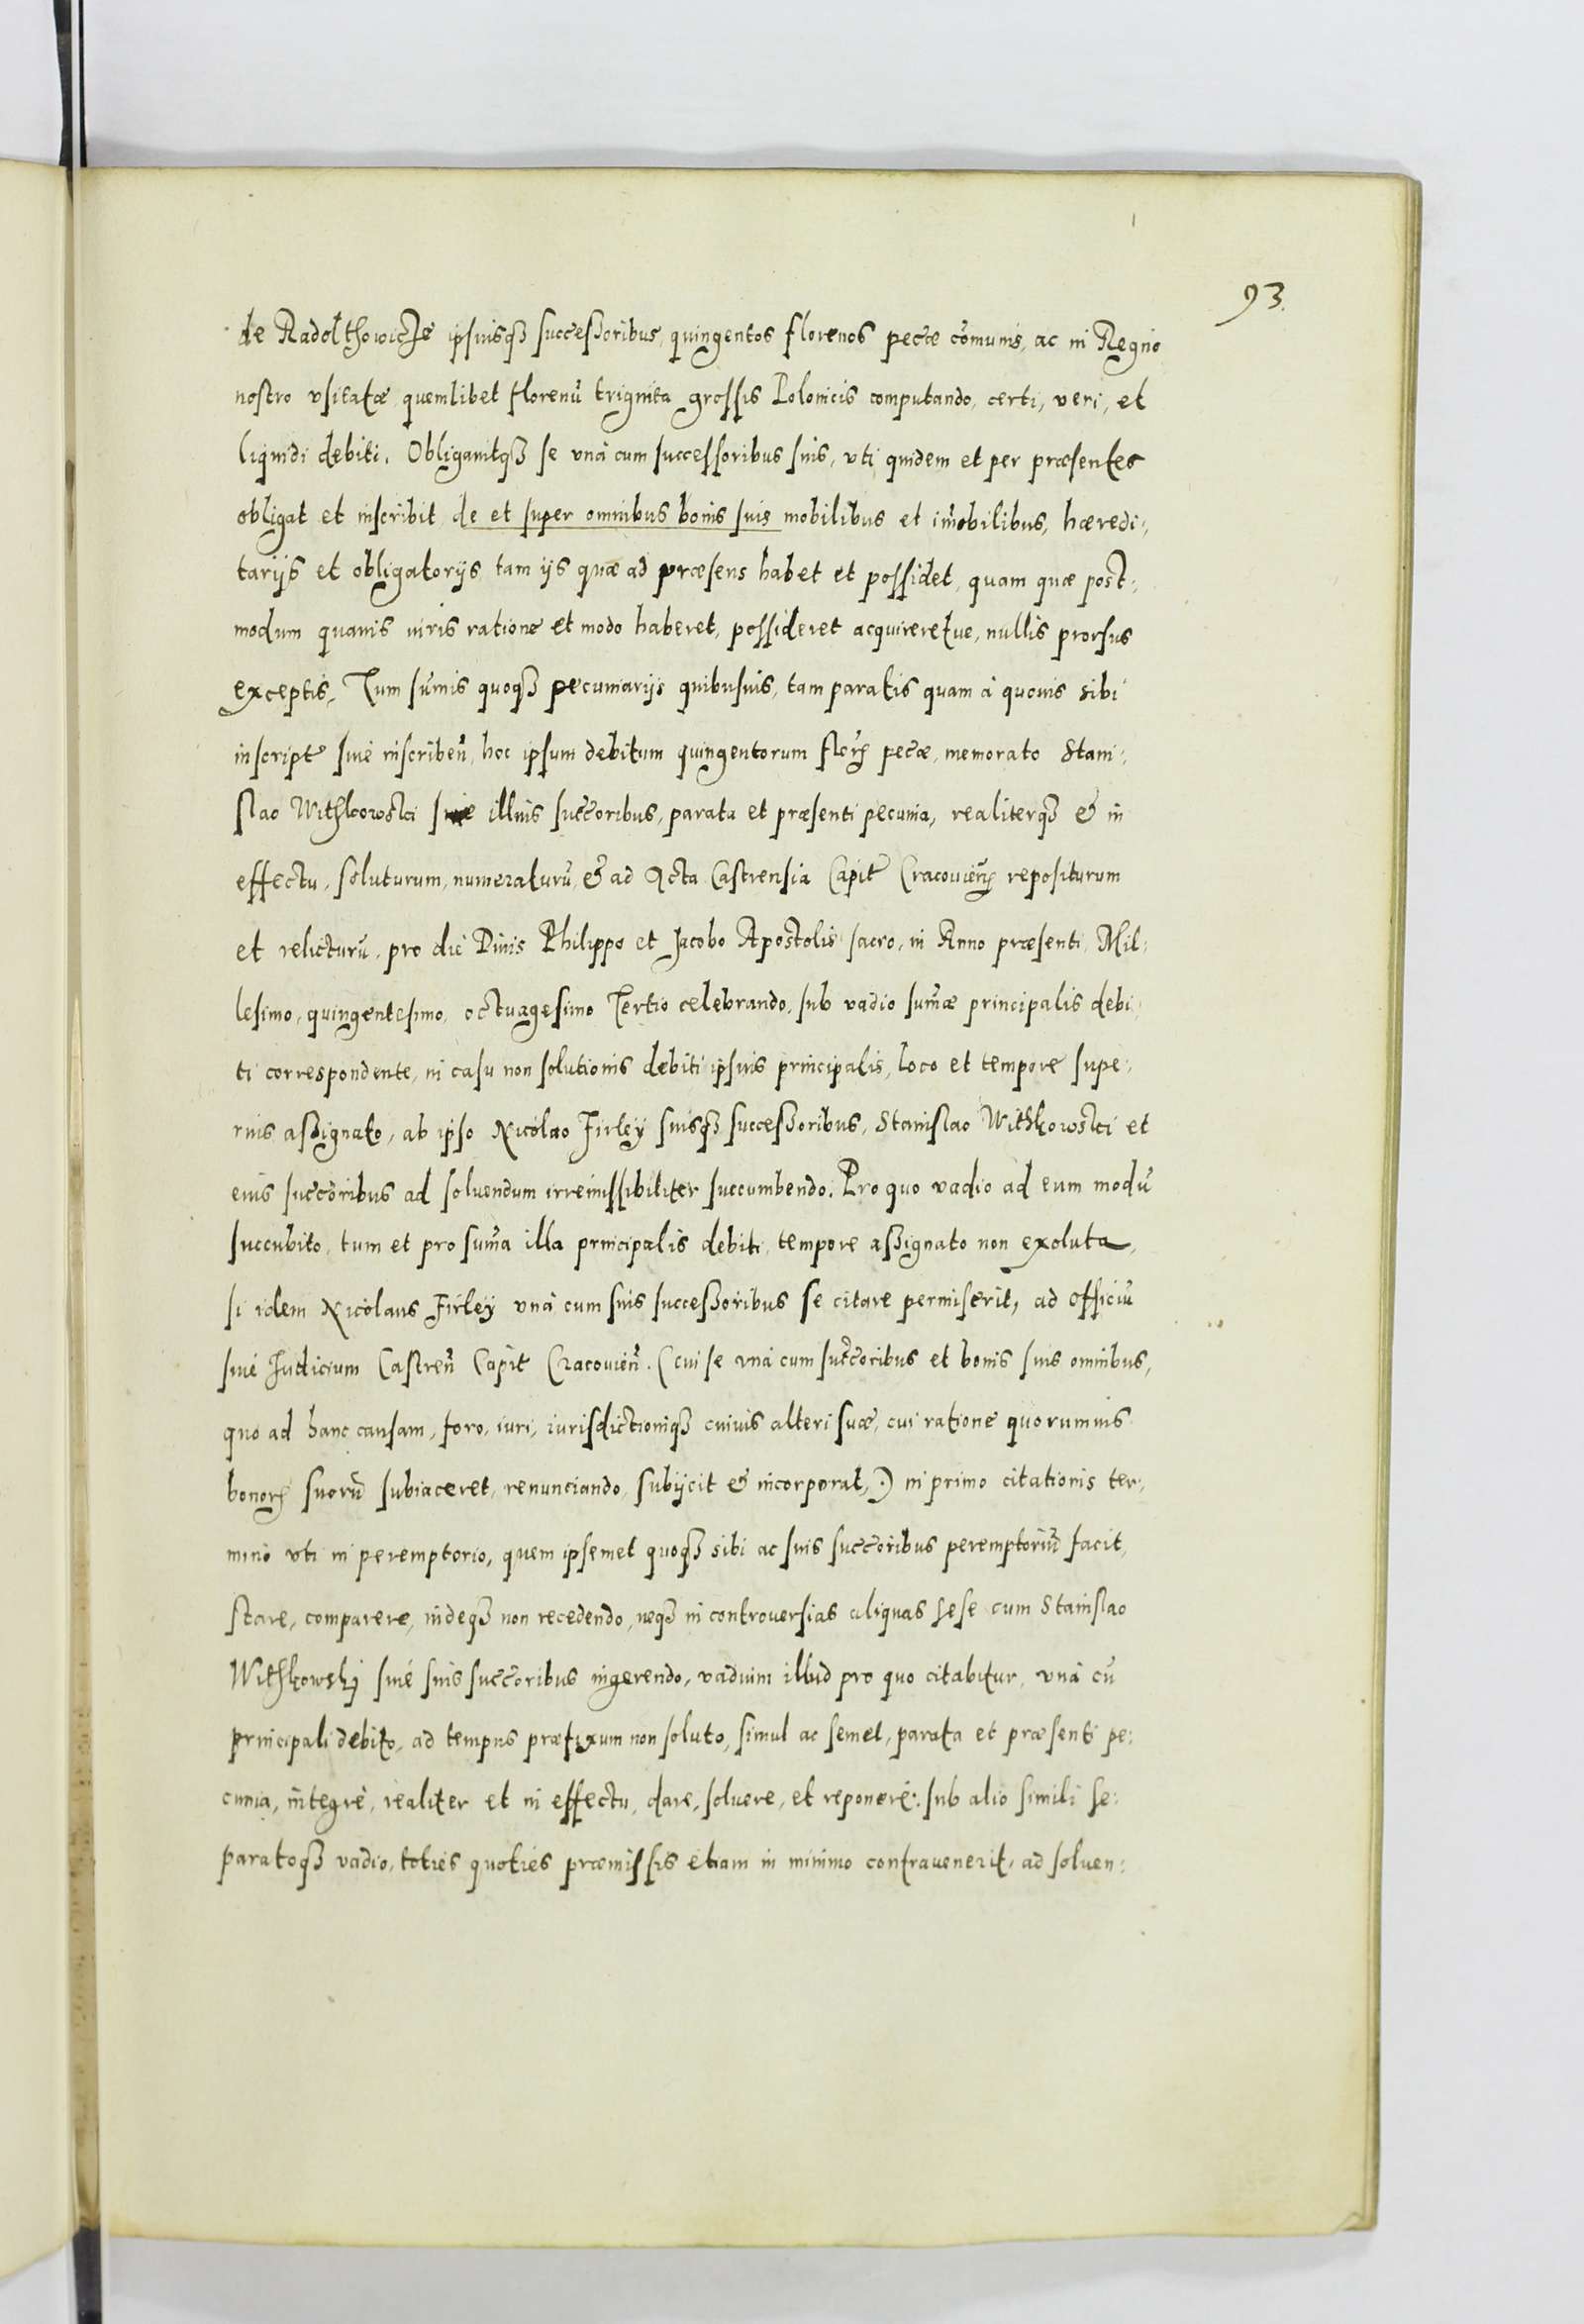 93.
de Radolthowicze ipsiusq3 successoribus, quingentos florenos pecce cōmunis, ac in Regno
nostro vsitatæ, quemlibet florenū triginta grossis Polonicis computando, certi, veri, et
liquidi debiti. Obligauitq3 se vnà cum successoribus suis, vti quidem et per præsentes
obligat et inscribit de et super omnibus bonis suis mobilibus et im̄obilibus, hæredi:
tarijs et obligatorijs tam ijs quæ ad præsens habet et possidet, quam quæ post:
modum quauis iuris ratione et modo haberet, possideret acquireretue, nullis prorsus
exceptis. Tum sum̄is quoq3 pecuniarijs quibusuis, tam paratis quam à quouis sibi
inscript siue inscriben̄, hoc ipsum debitum quingentorum flor̄ pecæ, memorato Stani:
slao Withkowski siue illius succ̄oribus, parata et præsenti pecunia, realiterq3 & in
effectu, soluturum, numeraturū, & ad Acta Castrensia Capit Cracouien̄ repositurum
et relicturū, pro die Diuis Philippo et Jacobo Apostolis sacro, in Anno præsenti Mil:
lesimo, quingentesimo, octuagesimo Tertio celebrando, sub vadio sum̄æ principalis debi:
ti correspondente, in casu non solutionis debiti ipsius principalis, loco et tempore supe:
rius assignato, ab ipso Nicolao Firley suisq3 successoribus, Stanislao Withkowski et
eius succ̄oribus ad soluendum irremissibiliter succumbendo. Pro quo vadio ad eum modū
succubito, tum et pro sum̄a illa principalis debiti tempore assignato non exoluta,
si idem Nicolaus Firley vnà cum suis successoribus se citare permiserit, ad officiū
siue Iudicium Castren̄ Capit Cracouien̄. (cui se vnà cum succ̄oribus et bonis suis omnibus,
quo ad hanc causam, foro, iuri, iurisdictioniq3 cuiuis alteri suæ, cui ratione quorumuis
bonor̄ suorū subiaceret, renunciando, subijcit & incorporat,) in primo citationis ter:
mino vti in peremptorio, quem ipsemet quoq3 sibi ac suis succ̄oribus peremptoriū facit,
stare, comparere, indeq3 non recedendo, neq3 in controuersias aliquas sese cum Stanislao
Withkowskj siue suis succ̄oribus ingerendo, vadium illud pro quo citabitur, vnà cū
principali debito, ad tempus præfixum non soluto, simul ac semel, parata et præsenti pe:
cunia, integrè, realiter et in effectu, dare, soluere, et reponere. sub alio simili se:
paratoq3 vadio, toties quoties præmissis etiam in minimo contrauenerit, ad soluen: